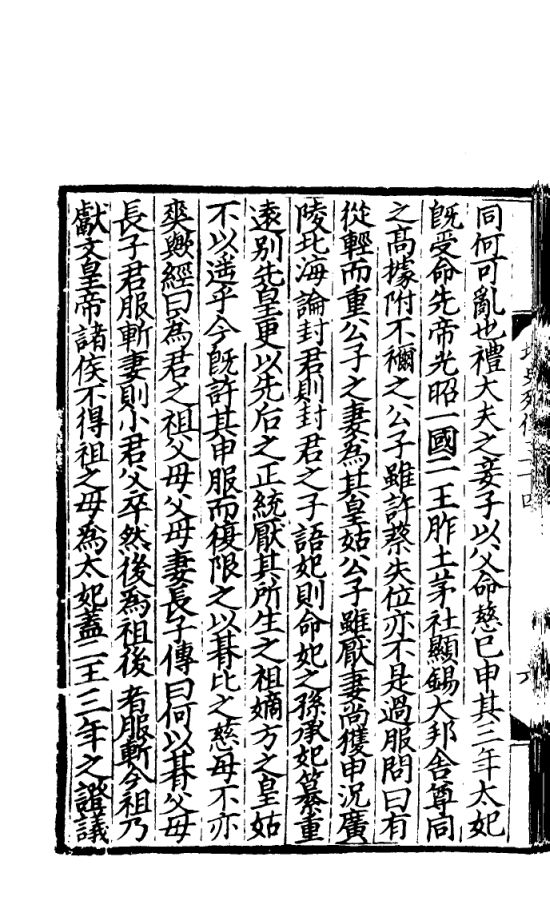 同何可亂也禮大夫之妾子以父命慈已申其三年太妃
旣受命先帝光昭一國二王胙土茅社顯錫大邦舍尊同
之髙據附不禰之公子雖許蔡失位亦不是過服問曰有
從輕而重公子之妻為其皇姑公子雖厭妻尚獲申况廣
陵北海論封君則封君之子語妃則命妃之孫承妃纂重
遠别先皇更以先后之正統厭其所生之祖嫡方之皇姑
不以遥乎今旣許其申服而復限之以朞比之慈母不亦
爽歟經曰為君之祖父母父母妻長子傳曰何以朞父母
長子君服斬妻則小君父卒然後為祖後者服斬今祖乃
獻文皇帝諸侯不得祖之母為太妃蓋二王三年之證議